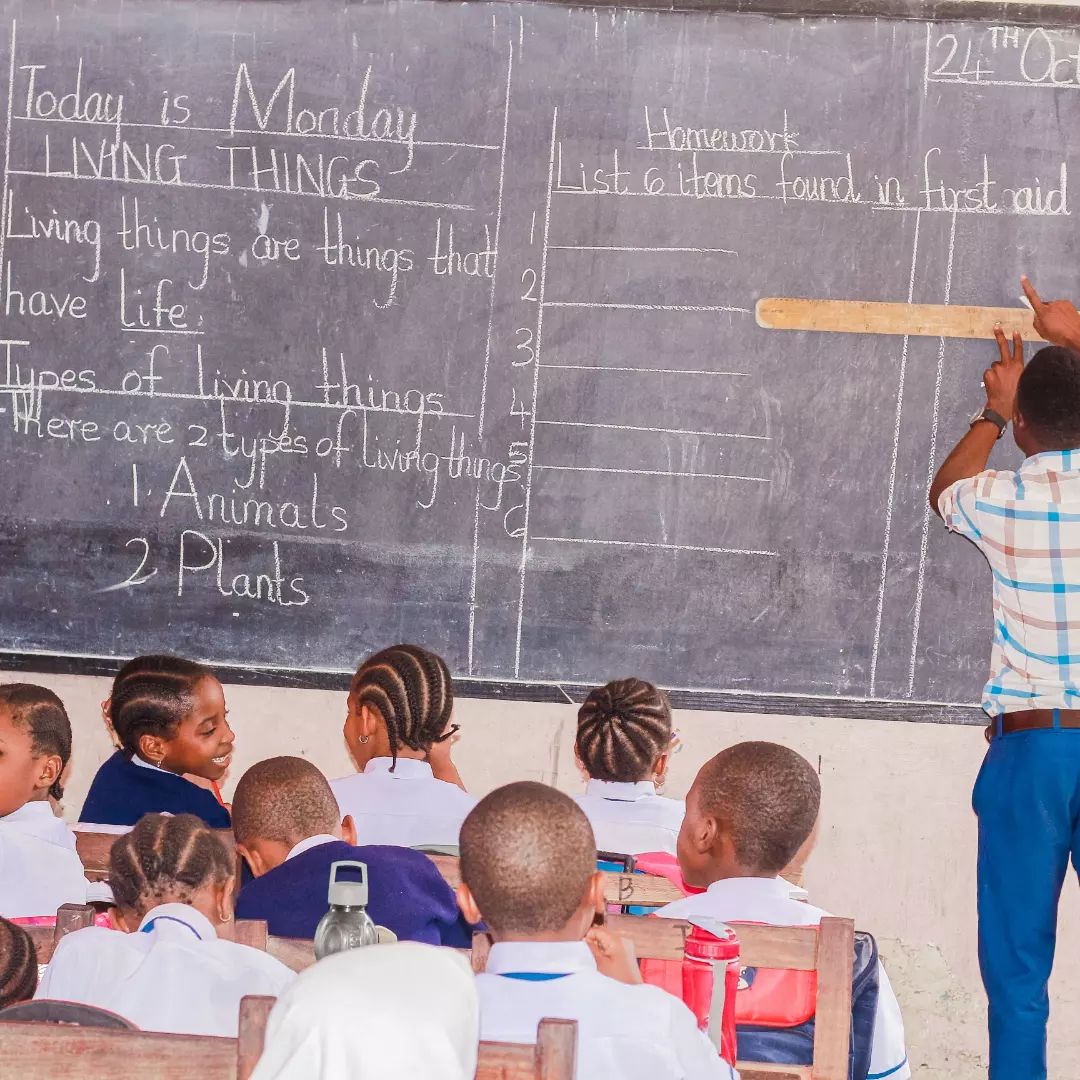 Today is Monday
LIVING THINGS
Living things are things that
have Life.
Types of living things
There are 2 types of living things
1. Animals
2 Plants
Homework
List 6 items found in first aid
1
2
3
4
5
6
24TH Oct
B